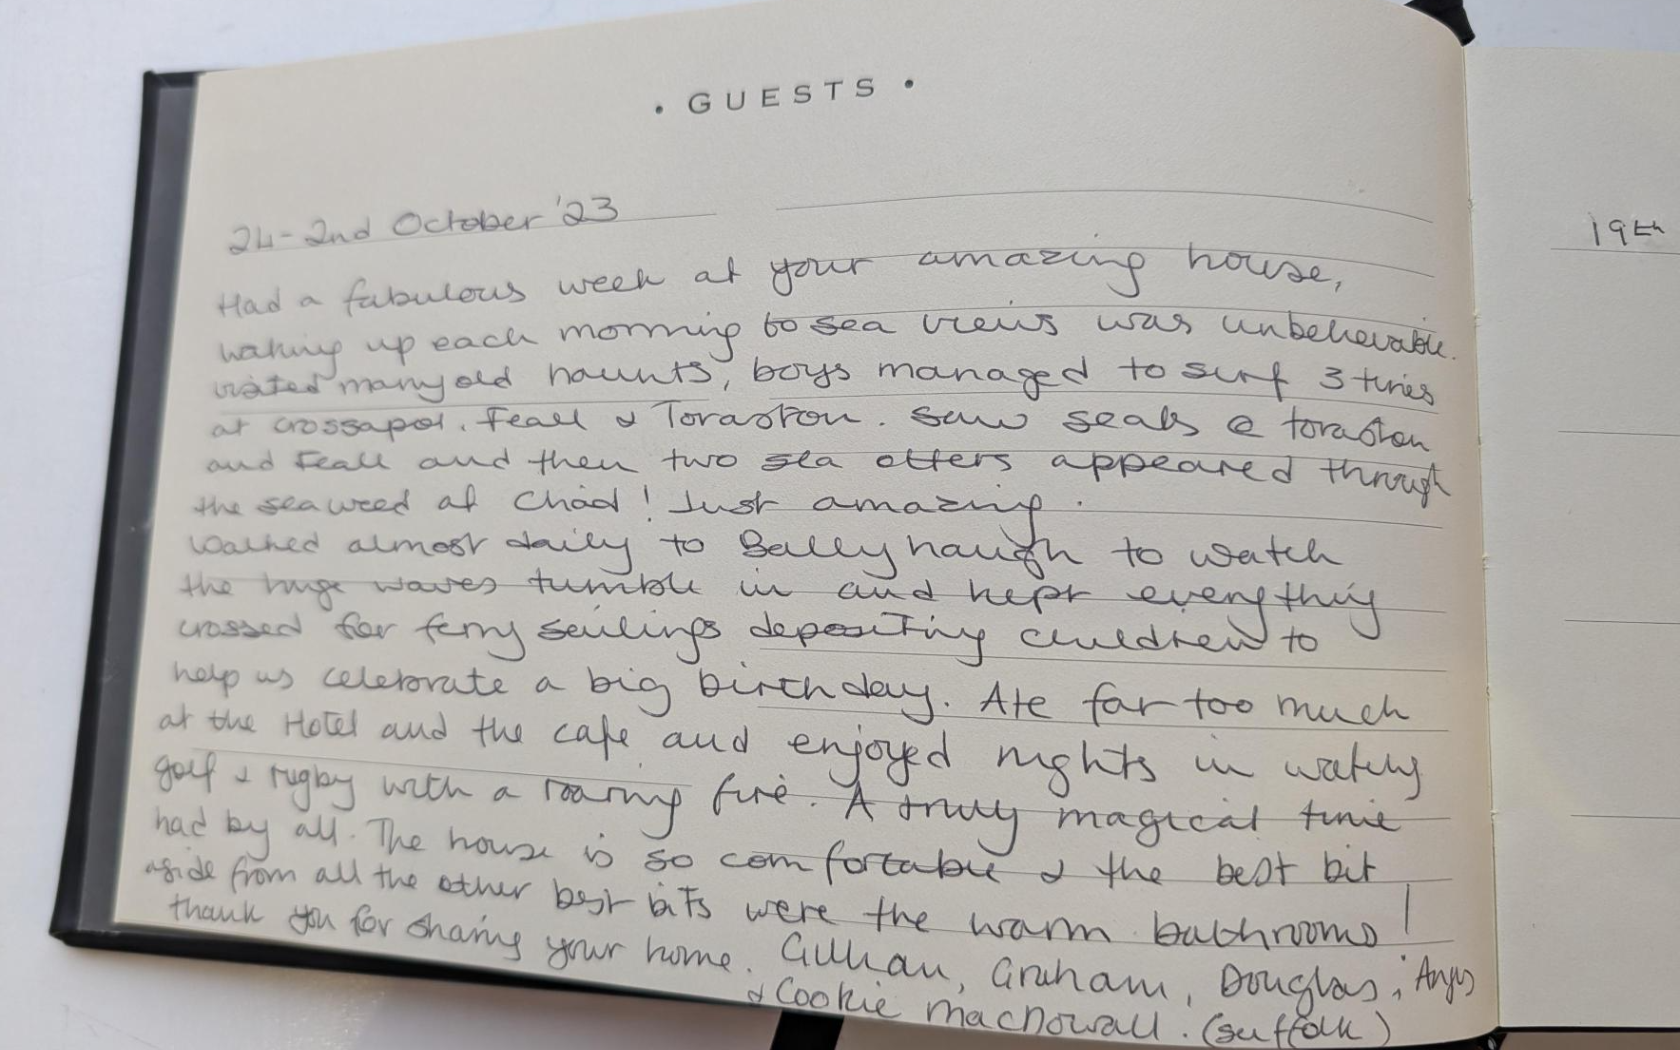 • GUESTS •
24-2nd October '23
Had a fabulous week at your amazing house,
waking up each morning to sea views was unbelievable.
visited many old haunts, boys managed to surf 3 times
at crossapol, Feall & Toraston. Saw seals @ toraston
and Feall and then two sea otters appeared through
the seaweed at Chad! Just amazing.
Walked almost daily to Ballyhaugh to watch
the huge waves tumble in and kept everything
crossed for ferry sailings depositing children to
help us celebrate a big birthday. Ate far too much
at the Hotel and the cafe and enjoyed nights in watching
golf & rugby with a roaring fire. A truly magical time
had by all. The house is so comfortable & the best bit
aside from all the other best bits were the warm bathrooms!
thank you for sharing your home. Gillian, Graham, Douglas, Angus
& Cookie MacDowall. (Suffolk)
19th